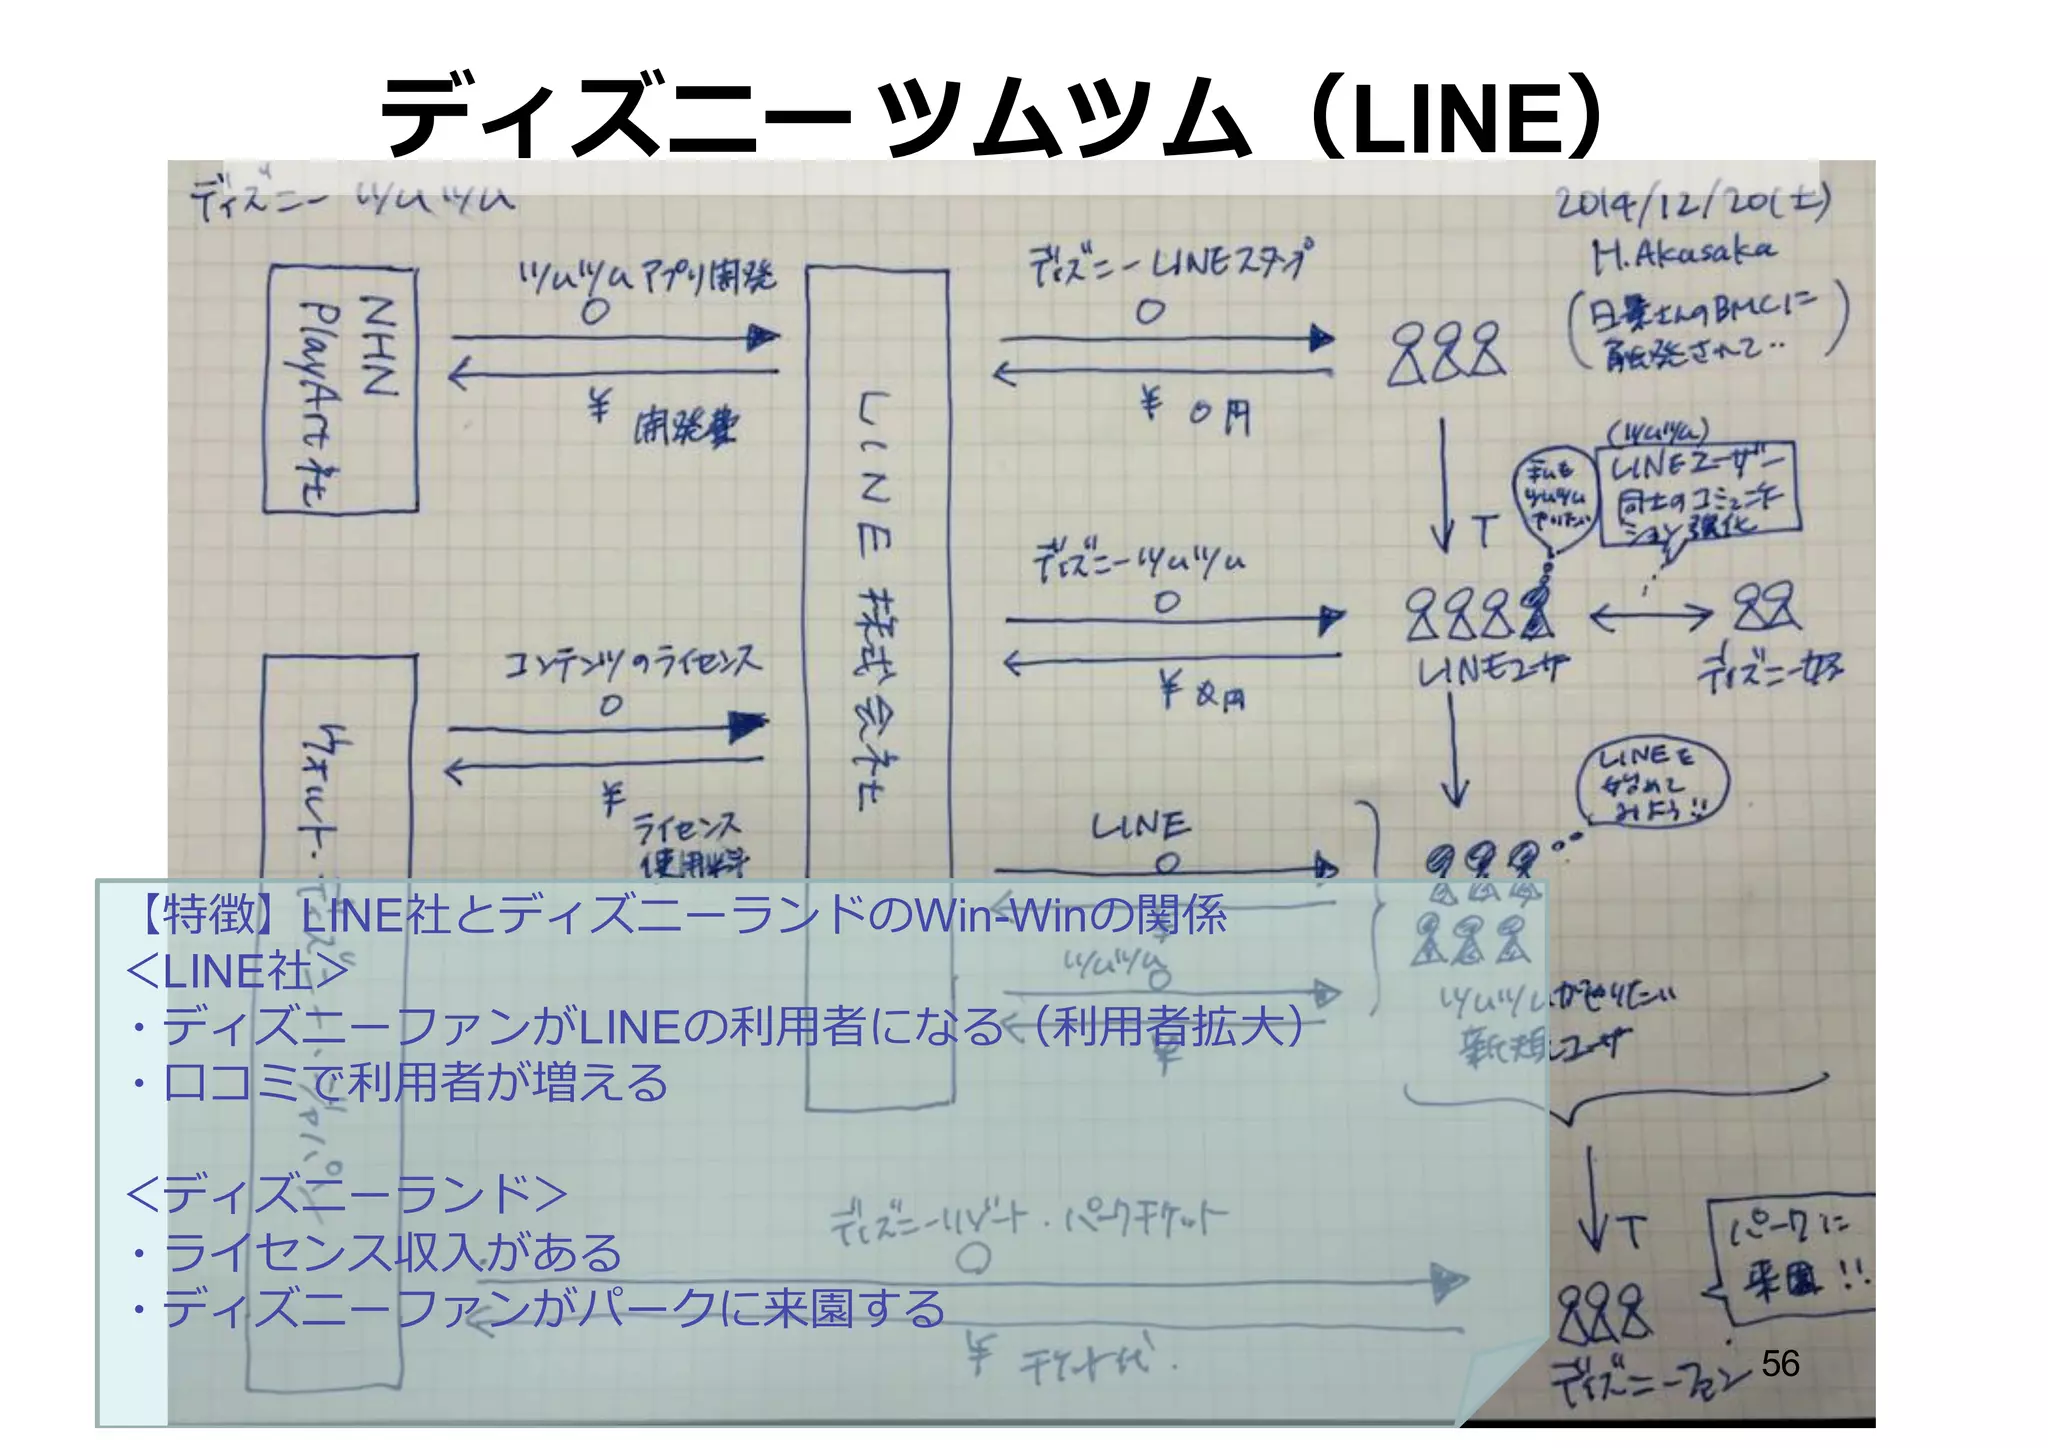 ディズニー ツムツム（LINE）
ディズニー ツムツム
2014/12/20(土)
H.Akasaka
ツムツムアプリ開発
ディズニーLINEスタンプ
NHN
PlayArt社
¥ 開発費
¥ 0円
(ツムツム)
LINEユーザー
同士のコミュニケー
ション強化
私も
ツムツム
やりたい
T
LINE株式会社
ディズニーツムツム
¥ 0円
LINEユーザ
ディズニー好
コンテンツのライセンス
¥ ライセンス
使用料
ウォルト・ディズニー・ジャパン
LINEを
始めて
みよう!!
LINE
¥
ツムツム
¥
ツムツムがやりたい
新規ユーザ
【特徴】LINE社とディズニーランドのWin-Winの関係
＜LINE社＞
・ディズニーファンがLINEの利用者になる（利用者拡大）
・口コミで利用者が増える
＜ディズニーランド＞
・ライセンス収入がある
・ディズニーファンがパークに来園する
ディズニーリゾート・パークチケット
¥ チケット代
T
パークに
来園!!
ディズニーファン
56